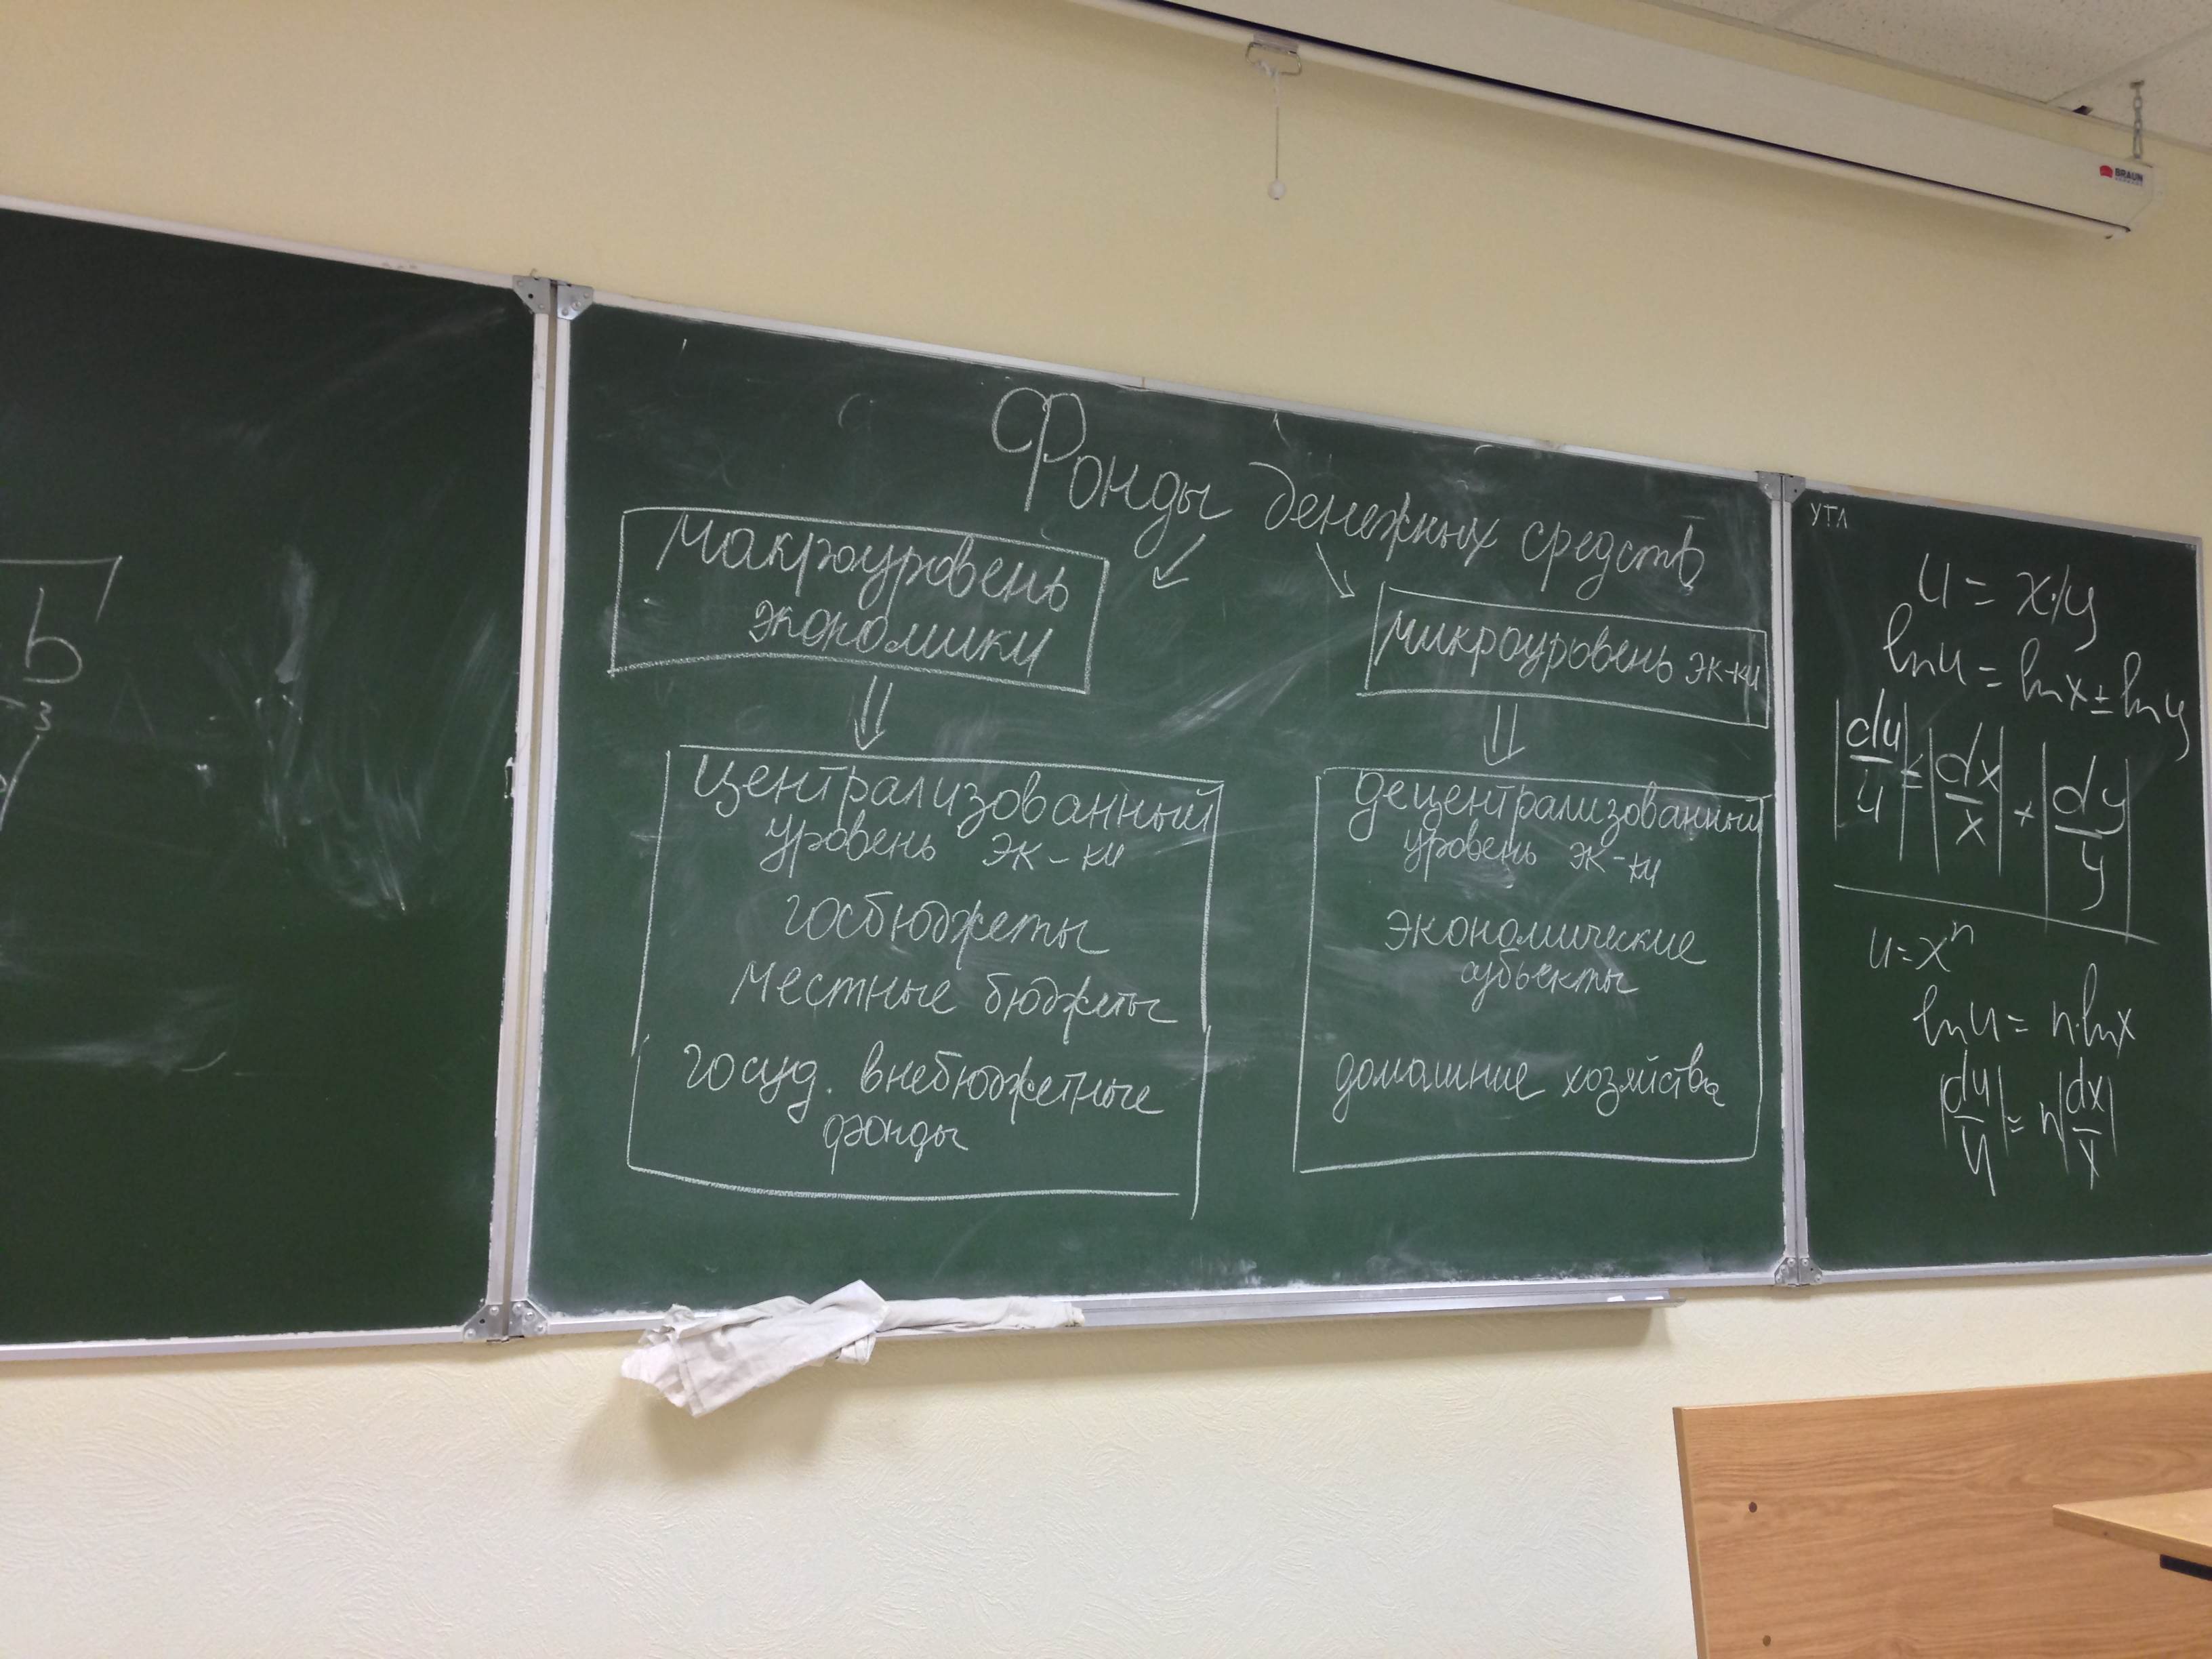 BRAUN
Фонды денежных средств
Макроуровень
экономики
микроуровень эк-ки
централизованный
уровень эк-ки
госбюджеты
местные бюджеты
госуд. внебюджетные
фонды
децентрализованный
уровень эк-ки
экономические
субъекты
домашние хозяйства
b
3
УТЛ
u = x·/y
ln u = ln x ± ln y
|du/u| = |dx/x| + |dy/y|
u = xⁿ
ln u = n·ln x
|du/u| = n|dx/x|